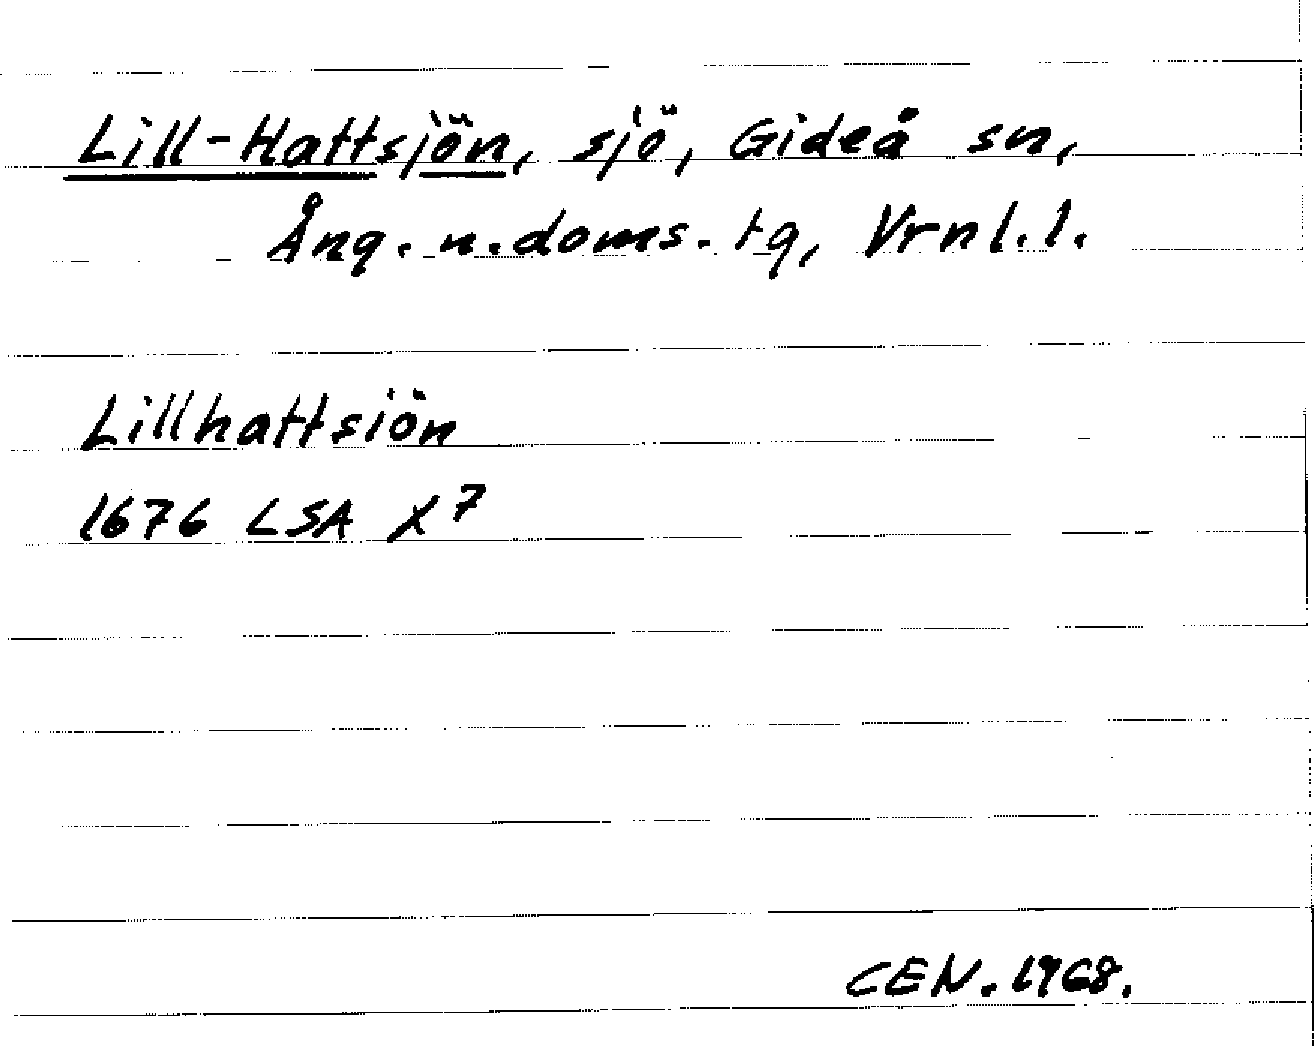 Lill-Hattsjön, sjö, Gideå sn,
Ång. n. doms. tg, Vrnl. l.
Lillhattsiön
1676 LSA X7
CEN. 1968.